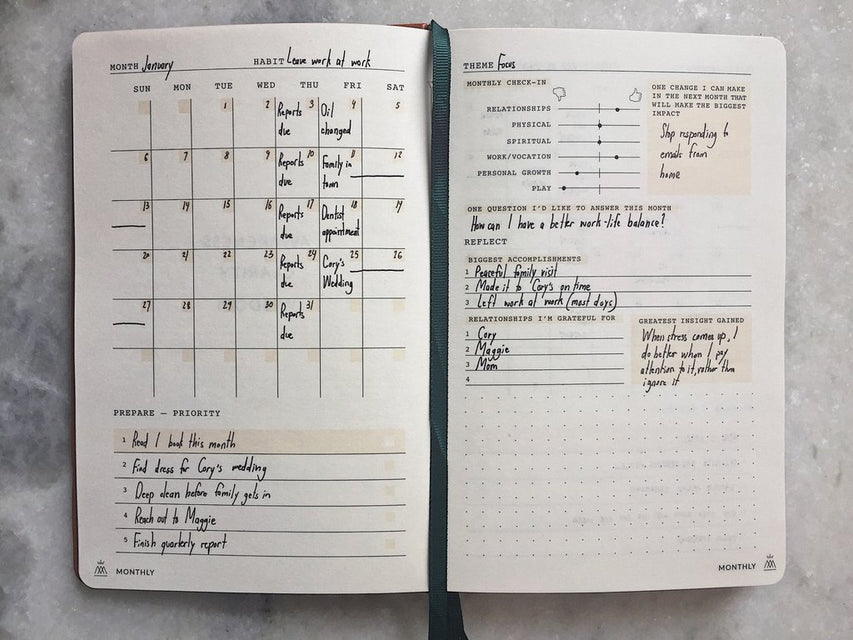 MONTH January HABIT Leave work at work
SUN MON TUE WED THU FRI SAT
1 2 3 4 5
Reports due
Oil changed
6 7 8 9 10 11 12
Reports due
Family in town
13 14 15 16 17 18 19
Reports due
Dentist appointment
20 21 22 23 24 25 26
Reports due
Cory's Wedding
27 28 29 30 31
Reports due
PREPARE — PRIORITY
1 Read 1 book this month
2 Find dress for Cory's wedding
3 Deep clean before family gets in
4 Reach out to Maggie
5 Finish quarterly report
MONTHLY
THEME Focus
MONTHLY CHECK-IN
RELATIONSHIPS
PHYSICAL
SPIRITUAL
WORK/VOCATION
PERSONAL GROWTH
PLAY
ONE CHANGE I CAN MAKE
IN THE NEXT MONTH THAT
WILL MAKE THE BIGGEST
IMPACT
Stop responding to
emails from
home
ONE QUESTION I'D LIKE TO ANSWER THIS MONTH
How can I have a better work-life balance?
REFLECT
BIGGEST ACCOMPLISHMENTS
1 Peaceful family visit
2 Made it to Cory's on time
3 Left work at work (most days)
RELATIONSHIPS I'M GRATEFUL FOR
1 Cory
2 Maggie
3 Mom
4
GREATEST INSIGHT GAINED
When stress comes up, I
do better when I pay
attention to it, rather than
ignore it
MONTHLY